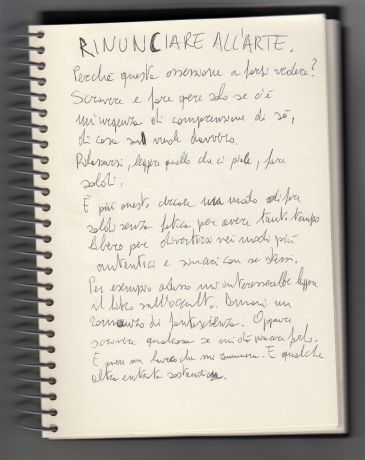 RINUNCIARE ALL'ARTE.
Perché questa ossessione a farsi vedere?
Scrivere e fare opere solo se c'è
un'urgenza di comprensione di sé,
di cosa si vuole davvero.
Rilassarsi, leggere quello che ci piace, fare
soldi.
È più onesto cercare un modo di fare
soldi senza fatica, per avere tanto tempo
libero per divertirsi nei modi più
autentici e sinceri con se stessi.
Per esempio adesso mi interesserebbe leggere
il libro sull'occulto. Domani un
romanzo di fantascienza. Oppure
scrivere qualcosa se mi dà piacere farlo.
E avere un lavoro che mi rinumera. E qualche
altra entrata sostanziosa.